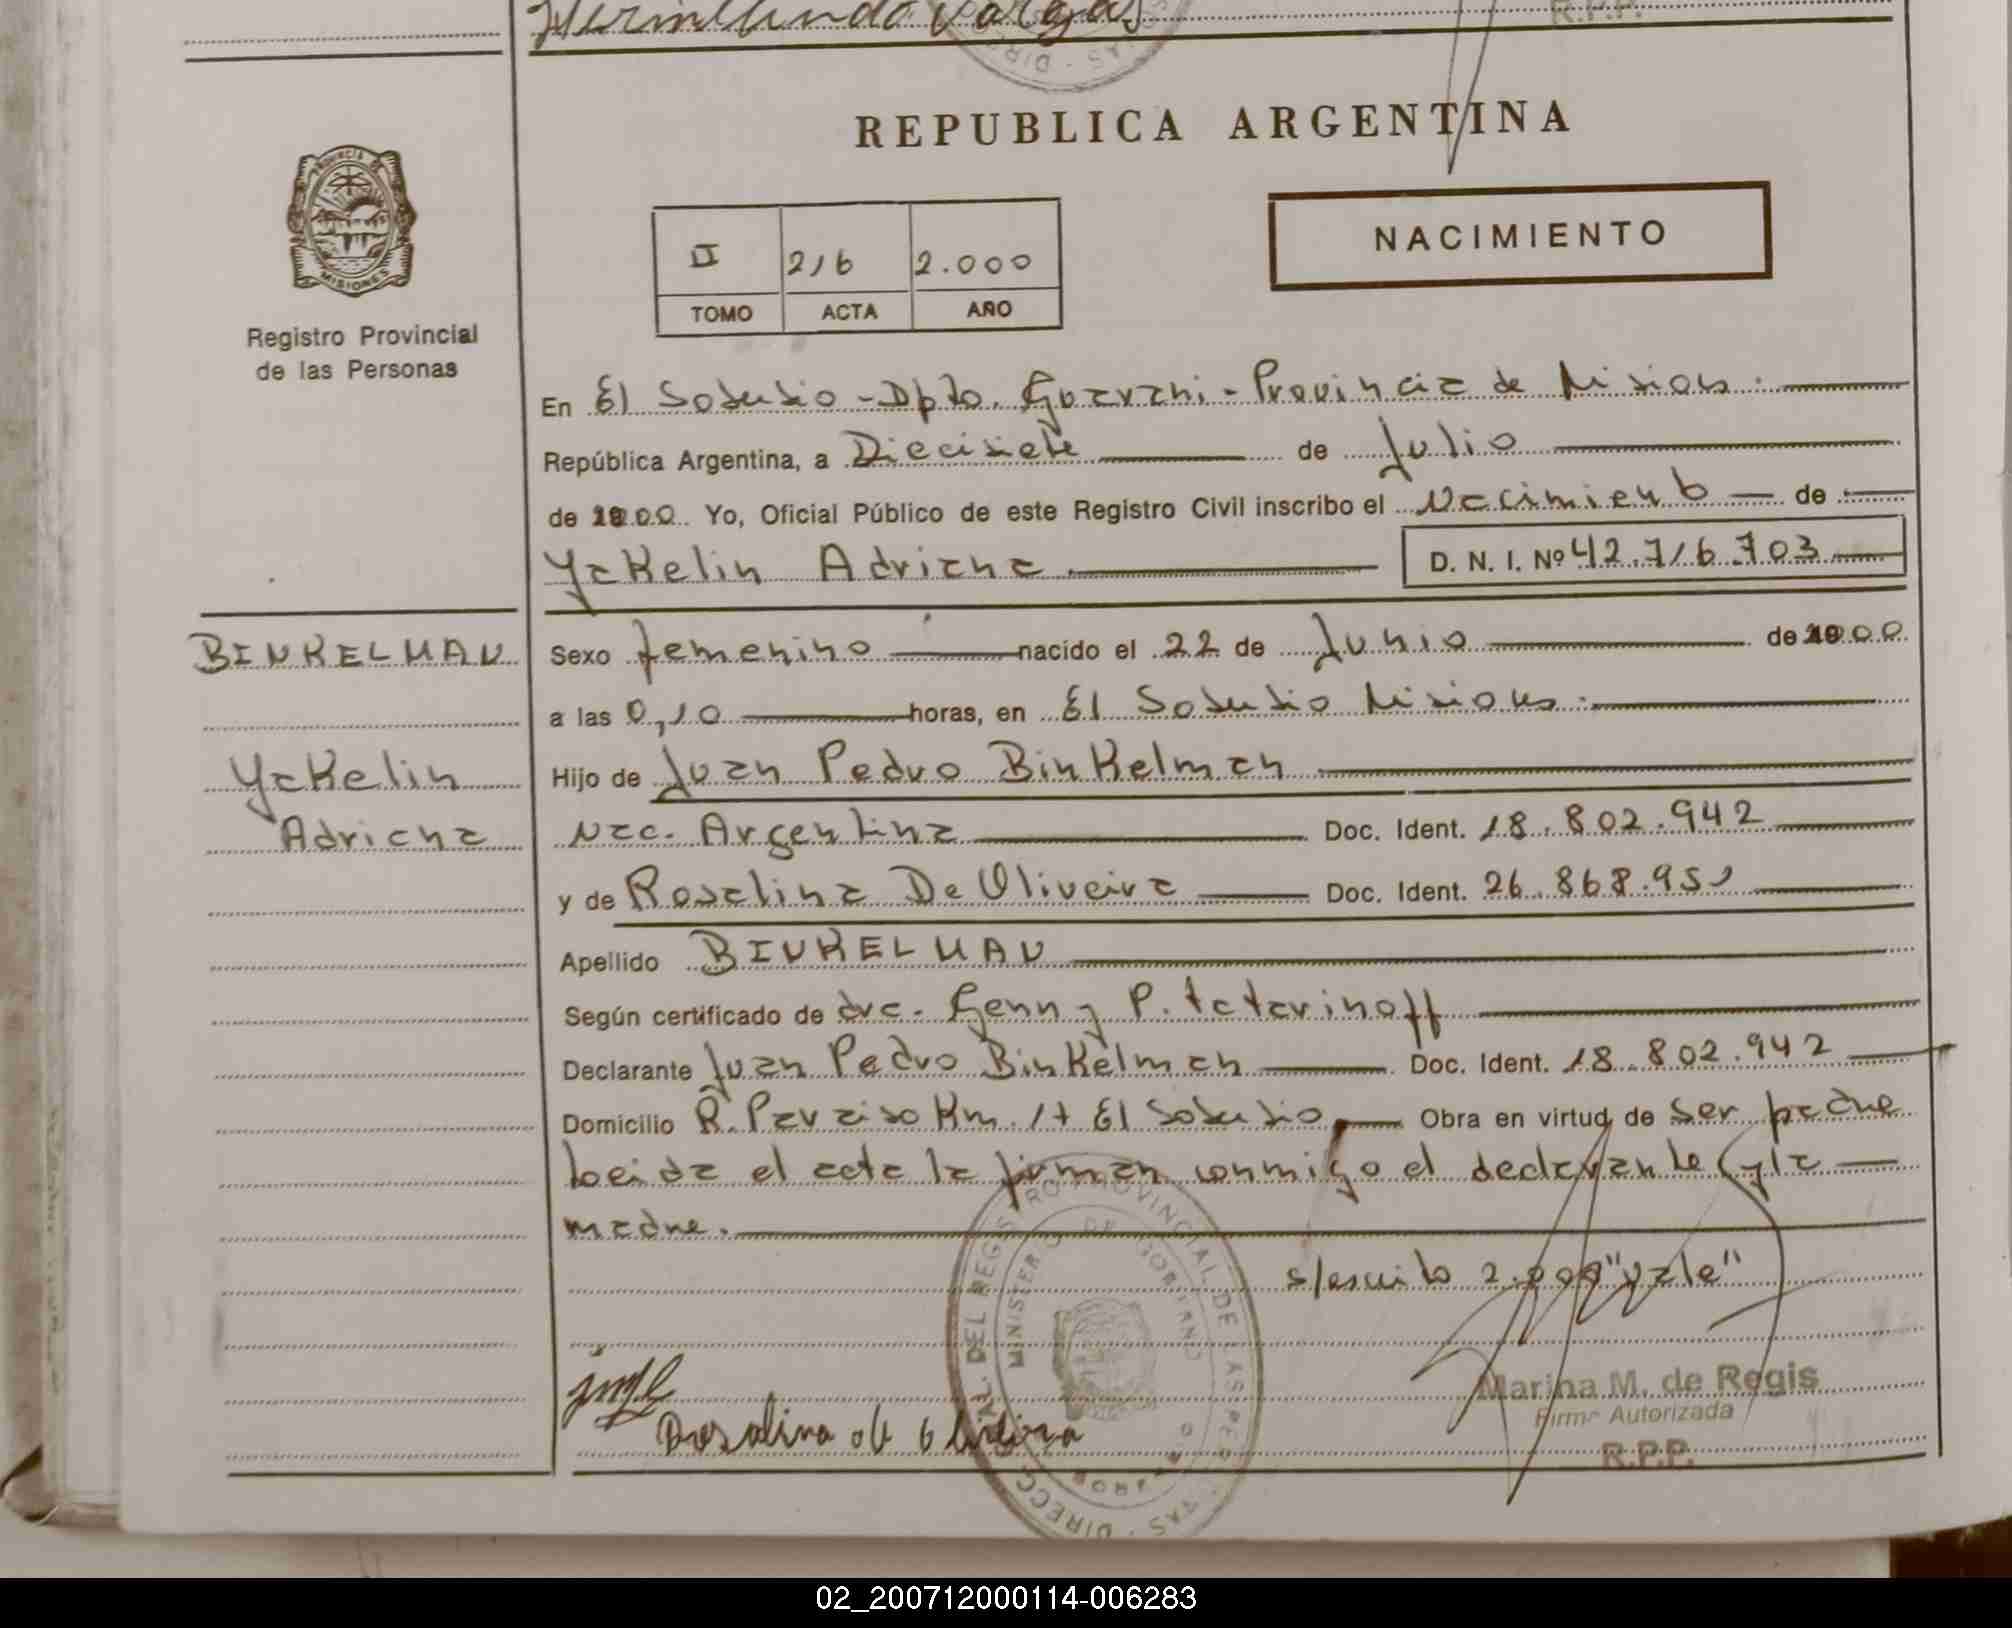 Hermenlindo Vargas
R.P.P.
REPUBLICA ARGENTINA
PROVINCIA DE
MISIONES
Registro Provincial
de las Personas
II 216 2.000
TOMO ACTA AÑO
NACIMIENTO
En El Soberbio - Dpto. Guarani - Provincia de Misiones.
República Argentina, a Diecisiete de Julio
de 2000. Yo, Oficial Público de este Registro Civil inscribo el Nacimiento de
Yakelin Adriana D. N. I. Nº 42.716.703
BINKELMAN
Yakelin
Adriana
Sexo femenino nacido el 22 de Junio de 2000
a las 0,10 horas, en El Soberbio Misiones.
Hijo de Juan Pedro Binkelman
Nac. Argentina Doc. Ident. 18.802.942
y de Rosalina De Oliveira Doc. Ident. 26.868.951
Apellido BINKELMAN
Según certificado de dra. Genny P. tatarinoff
Declarante Juan Pedro Binkelman Doc. Ident. 18.802.942
Domicilio R. Paraiso Km. 17 El Soberbio Obra en virtud de ser padre
Leida el acta la firman conmigo el declarante y la
madre.
s/escrito 2.000 "vale"
DIRECC. GRAL. DEL REGISTRO PROVINCIAL DE LAS PERSONAS
MINISTERIO DE GOBIERNO
Rosalina de Oliveira
Marina M. de Regis
Firma Autorizada
R.P.P.
02_200712000114-006283